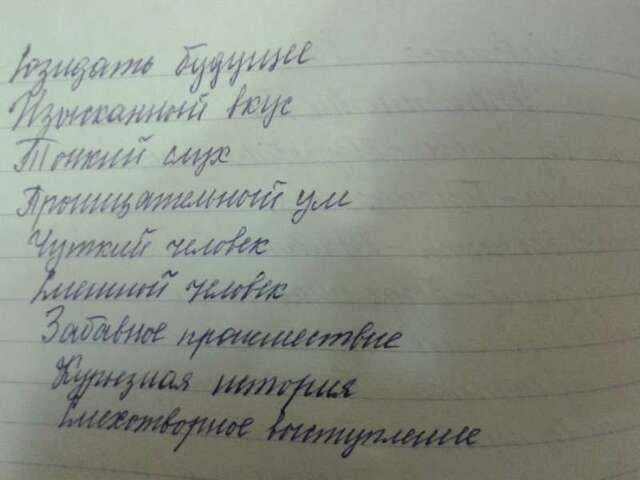 Созидать будущее
Изысканный вкус
Тонкий слух
Проницательный ум
Чуткий человек
Смешной человек
Забавное происшествие
Курьезная история
Смехотворное выступление